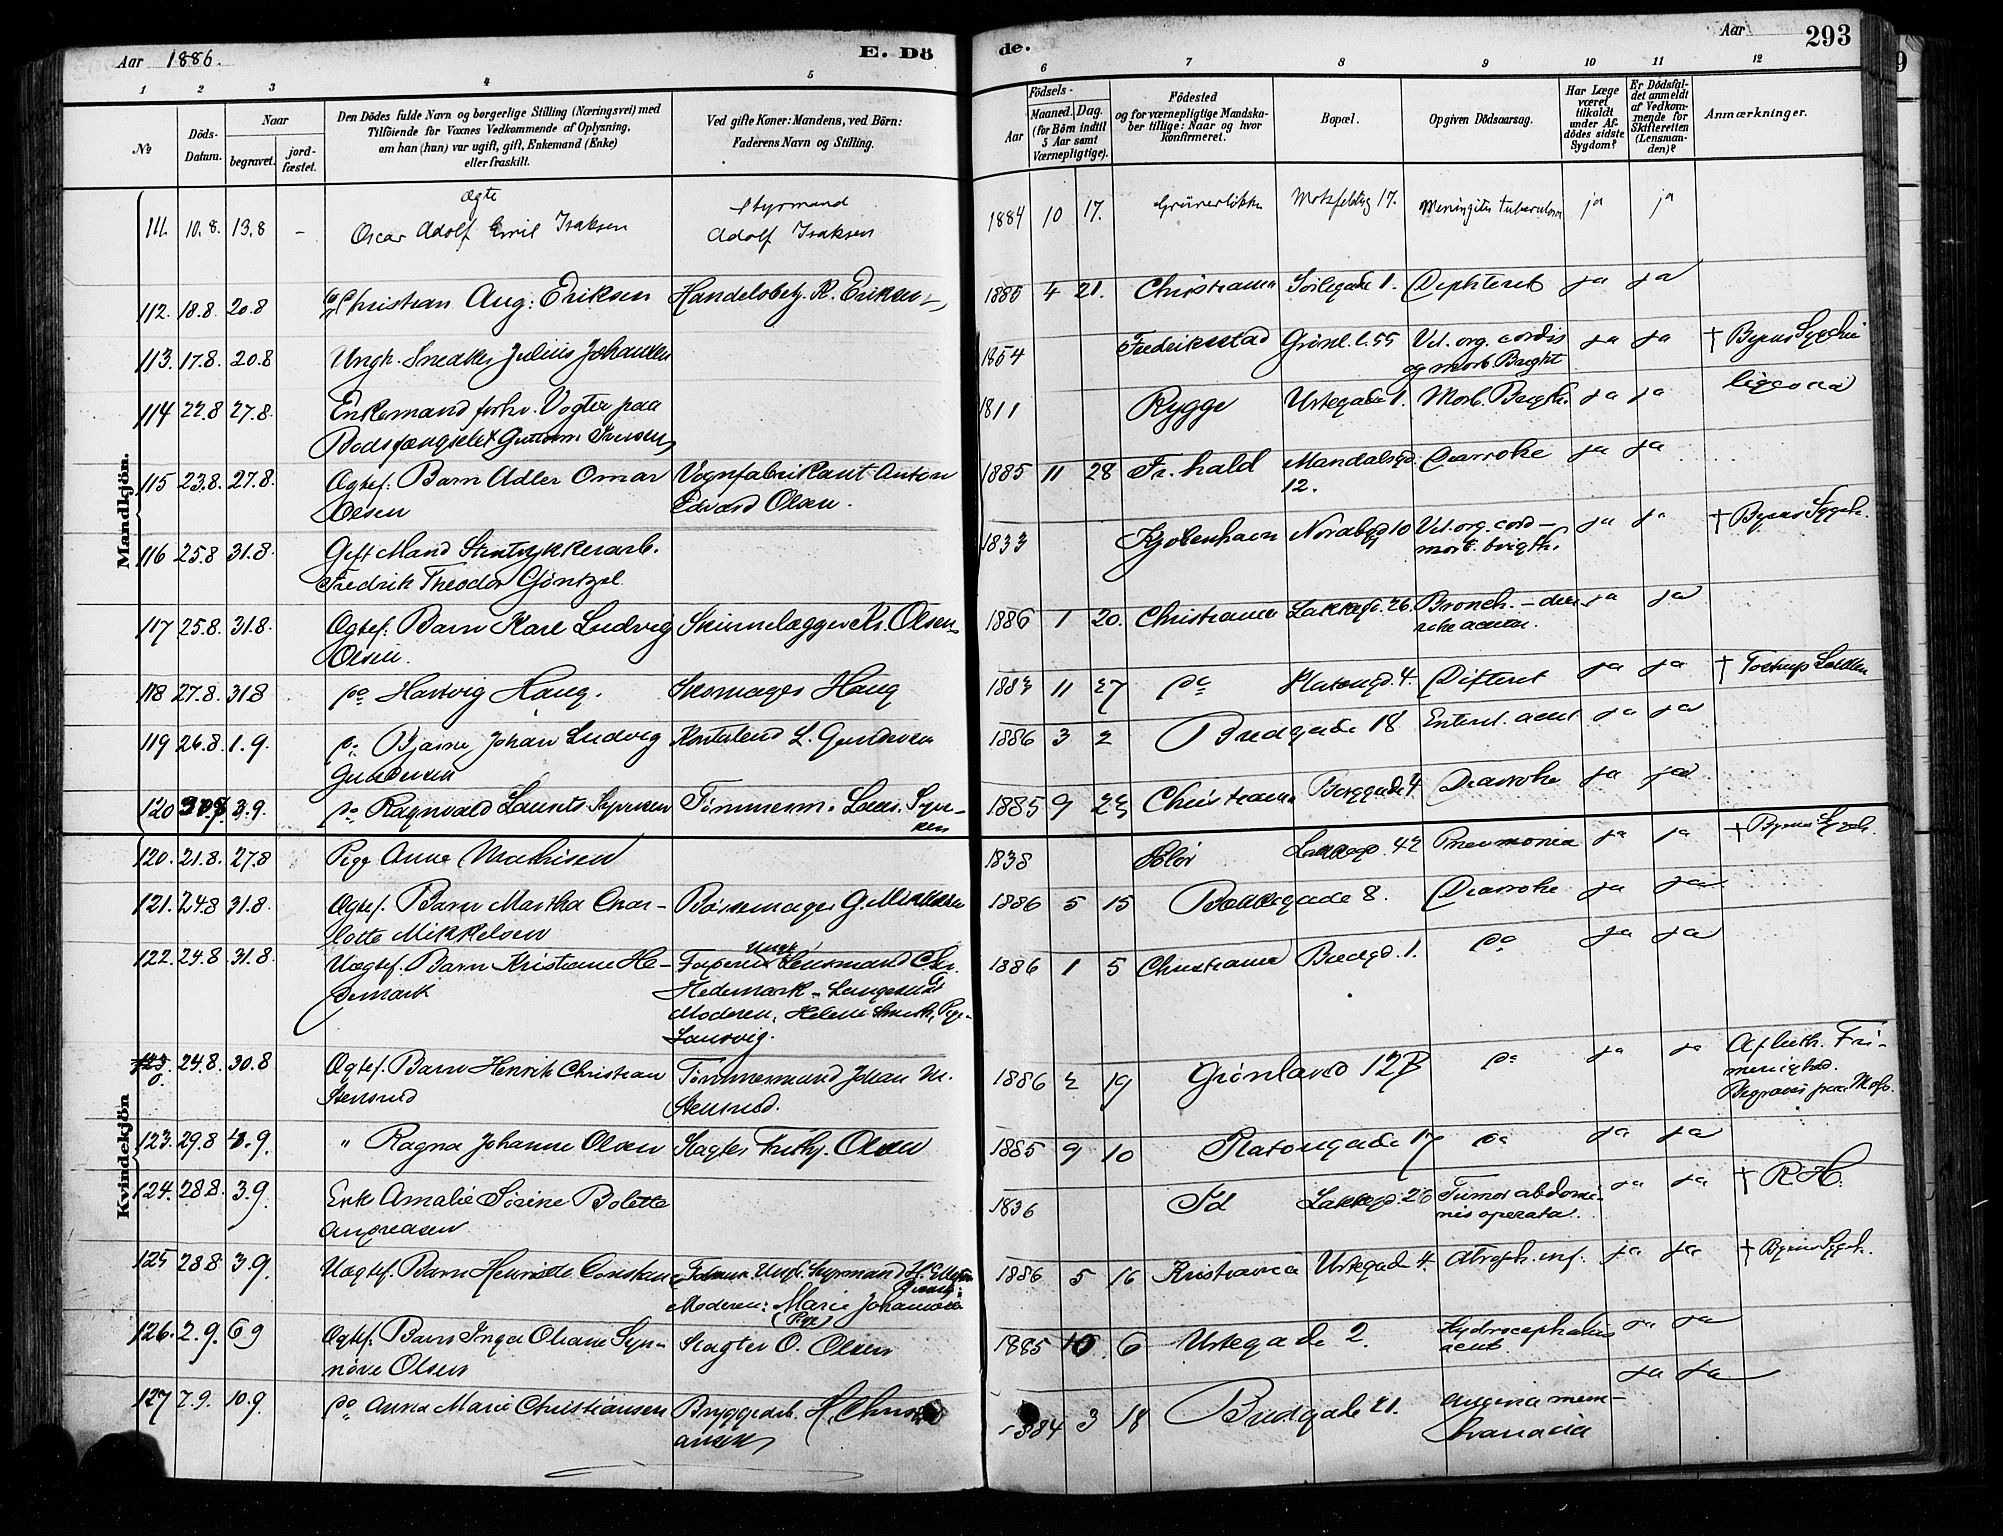 Aar 1886.
E. Döde.
Aar 293
1 2 3 4 5 6 7 8 9 10 11 12
No
Döds-Datum.
Naar
begravet.
jordfæstet.
Den Dödes fulde Navn og borgerlige Stilling (Næringsvei) med
Tilföiende for Voxnes Vedkommende af Oplysning,
om han (hun) var ugift, gift, Enkemand (Enke)
eller fraskilt.
Ved gifte Koner: Mandens, ved Börn:
Faderens Navn og Stilling.
Födsels-
Aar
Maaned. Dag.
(for Börn indtil
5 Aar samt
Værnepligtige).
Födested
og for værnepligtige Mandskaber tillige: Naar og hvor
konfirmeret.
Bopæl.
Opgiven Dödsaarsag.
Har Læge
været
tilkaldt
under Afdödes sidste
Sygdom?
Er Dödsfaldet anmeldt
af Vedkommende for
Skifteretten
(Lensmanden)?
Anmærkninger.
Mandkjön.
111. 10.8. 13.8 - Ægte Oscar Adolf Emil Isaksen Styrmand Adolf Isaksen 1884 10 17. Grünerløkke 17. Meningitis tuberculosa ja ja
112. 18.8. 20.8 Christian Aug: Eriksen Handelsbetj. K. Eriksen 1885 4 21. Christiania 1. Diphterit ja ja
113. 17.8. 20.8 Ungk. Julius Johansen 1854 Fredriksstad Grønl. l. 55 Vit. org. cordis og morb. Brighti ja ja † Byens Sygehus
114 22.8 27.8. Enkemand forhv. Vogter paa Bodsfængslet 1811 Rygge Urtegade 1. Morb. Brigh. ja ja
115 23.8. 27.8. Ægtef. Barn Adler Omar Olsen Vognfabrikant Anton Edvard Olsen. 1885 11 28 Fr.hald Mandalsgd. 12. Diarrohe ja ja
116 25.8 31.8. Gift Mand Stentrykkerarb. Fredrik Theodor Gøntzel 1833 Kjøbenhavn Norabygd 10 Vit. org. cord - morb. brigth. ja ja † Byens Sygeh.
117 25.8. 31.8. Ægtef. Barn Karl Ludvig Olsen. Skindlægger Kr. Olsen 1886 1 20. Christiania Lakkegd. 26. Bronch. ja ja
118 27.8. 31.8 do Hartvig Haug. Skomager Haug 1883 11 27 do Platougd. 4. Difterit ja ja †
119 26.8. 1.9. do Bjarne Johan Ludvig Gundersen L. Gundersen 1886 3 2 Bredgade 18 Enterit. acut ja ja
120 3.9. do Ragnvald Tømmerm. 1885 9 Christiania Borggade 4 Diarrohe ja ja
Kvindekjön
120. 21.8. 27.8 Pige Anna Mathisen 1838 Solør Lakkegd. 42 Pneumonia ja ja † Byens Sygeh.
121. 24.8 31.8. Ægtef. Barn Martha Charlotte Mikkelsen Børstemager G. Mikkelsen 1886 5 15 8. Diarrohe ja ja
122. 24.8 31.8. Uægtef. Barn Kristiane Hedemark Faderen Ungk. Lensmand Chr. Hedemark - Langesund Moderen, Helene Smith, Pige - Laurvig. 1886 1 5 Christiania Bredgd. 1. do ja ja
24.8. 30.8 Ægtef. Barn Henrik Christian Stensrud Tømmermand Johan M. Stensrud. 1886 2 19 Grønland 12B do ja ja Af luth. Frimenighed. Begravet paa
123. 29.8 3.9. " Ragna Johanne Olsen Slagter Frithj. Olsen 1885 9 10 Platougade 17 do ja ja
124. 28.8. 3.9. Enk Amalie Sørine Bolette Andreasen 1836 Id Lakkegd. 26 Tumor abdominis operata. ja ja † R.H.
125 28.8 3.9. Uægtef. Barn Henriette Moderen: Marie (Pige) 1886 5 16 Kristiania Urtegad. 4. Atroph. inf. ja ja † Byens Sygeh.
126. 2.9. 6 9 Ægtef. Barn Inga Oliane Synnøve Olsen Slagter O. Olsen 1885 10 6 Urtegade 2. Hydrocephalus acut. ja ja
127 7.9. 10.9 do Anna Marie Christiansen Bryggerarb. H. Christiansen 1884 3 18 Bredgade 21. Angina membranacia ja ja